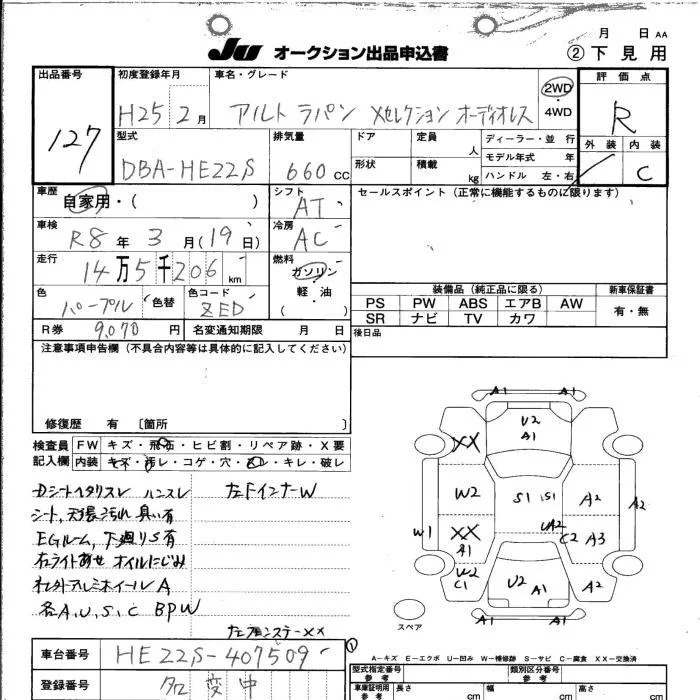 月 日 AA
JU オークション出品申込書
② 下見用
出品番号
127
初度登録年月
H25 2月
車名・グレード
アルト ラパン Xセレクション オーディオレス
2WD
・
4WD
評価点
R
外装 内装
C
型式
DBA-HE22S
排気量
660 cc
ドア
定員
人
形状
積載
kg
ディーラー・並 行
モデル年式 年
ハンドル 左・右
車歴
自家用・( )
シフト
AT
セールスポイント(正常に機能するものに限ります)
車検
R8年 3月(19日)
冷房
AC
走行
14万5千206km
燃料
ガソリン
・
軽油
( )
色
パープル
色替
色コード
ZED
装備品(純正品に限る)
新車保証書
PS PW ABS エアB AW
SR ナビ TV カワ
有・無
R券 9,070 円
名変通知期限 月 日
後日品
注意事項申告欄(不具合内容等は具体的に記入してください)
修復歴 有 [箇所 ]
検査員
記入欄
FW キズ・飛石・ヒビ割・リペア跡・X要
内装 キズ・汚レ・コゲ・穴・スレ・キレ・破レ
Dシートヘタリスレ ハンスレ
左FインナーW
シート、天張汚れ 臭い有
EGルーム、下廻りS有
右ライトあせ オイルにじみ
社外アルミホイールA
各A,U,S,C BPW
左フロンステーXX
A1 A1
U2
A1
XX
W2
S1 S1
A2
A2
W1
XX
A1
UA2
C2 A3
W2
C1
U2
A1
A2
A1 A1
スペア
車台番号
HE22S-407509
①
A-キズ E-エクボ U-凹み W-補修跡 S-サビ C-腐食 XX-交換済
型式指定番号
参考
類別区分番号
参考
車庫証明用
参考
長さ
cm
幅
cm
高さ
cm
登録番号
名変中